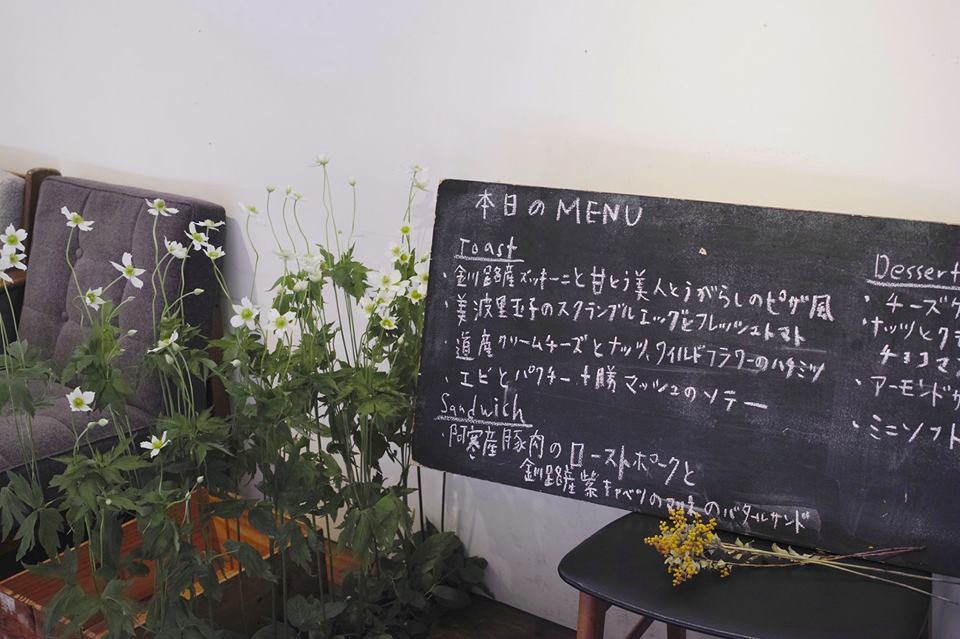 本日のMENU
Toast
・釧路産ズッキーニと甘とう美人とうがらしのピザ風
・美波里玉子のスクランブルエッグとフレッシュトマト
・道産クリームチーズとナッツ、ワイルドフラワーのハチミツ
・エビとパクチー 十勝マッシュのソテー
Sandwich
・阿寒産豚肉のローストポークと
釧路産紫キャベツの のバタールサンド
Dessert
・チーズケ
・ナッツとク
チョコマ
・アーモンド
・ミニソフト